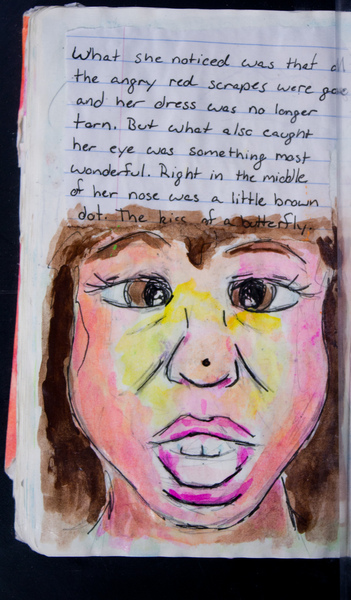 What she noticed was that all
the angry red scrapes were gone
and her dress was no longer
torn. But what also caught
her eye was something most
wonderful. Right in the middle
of her nose was a little brown
dot. The kiss of a butterfly.